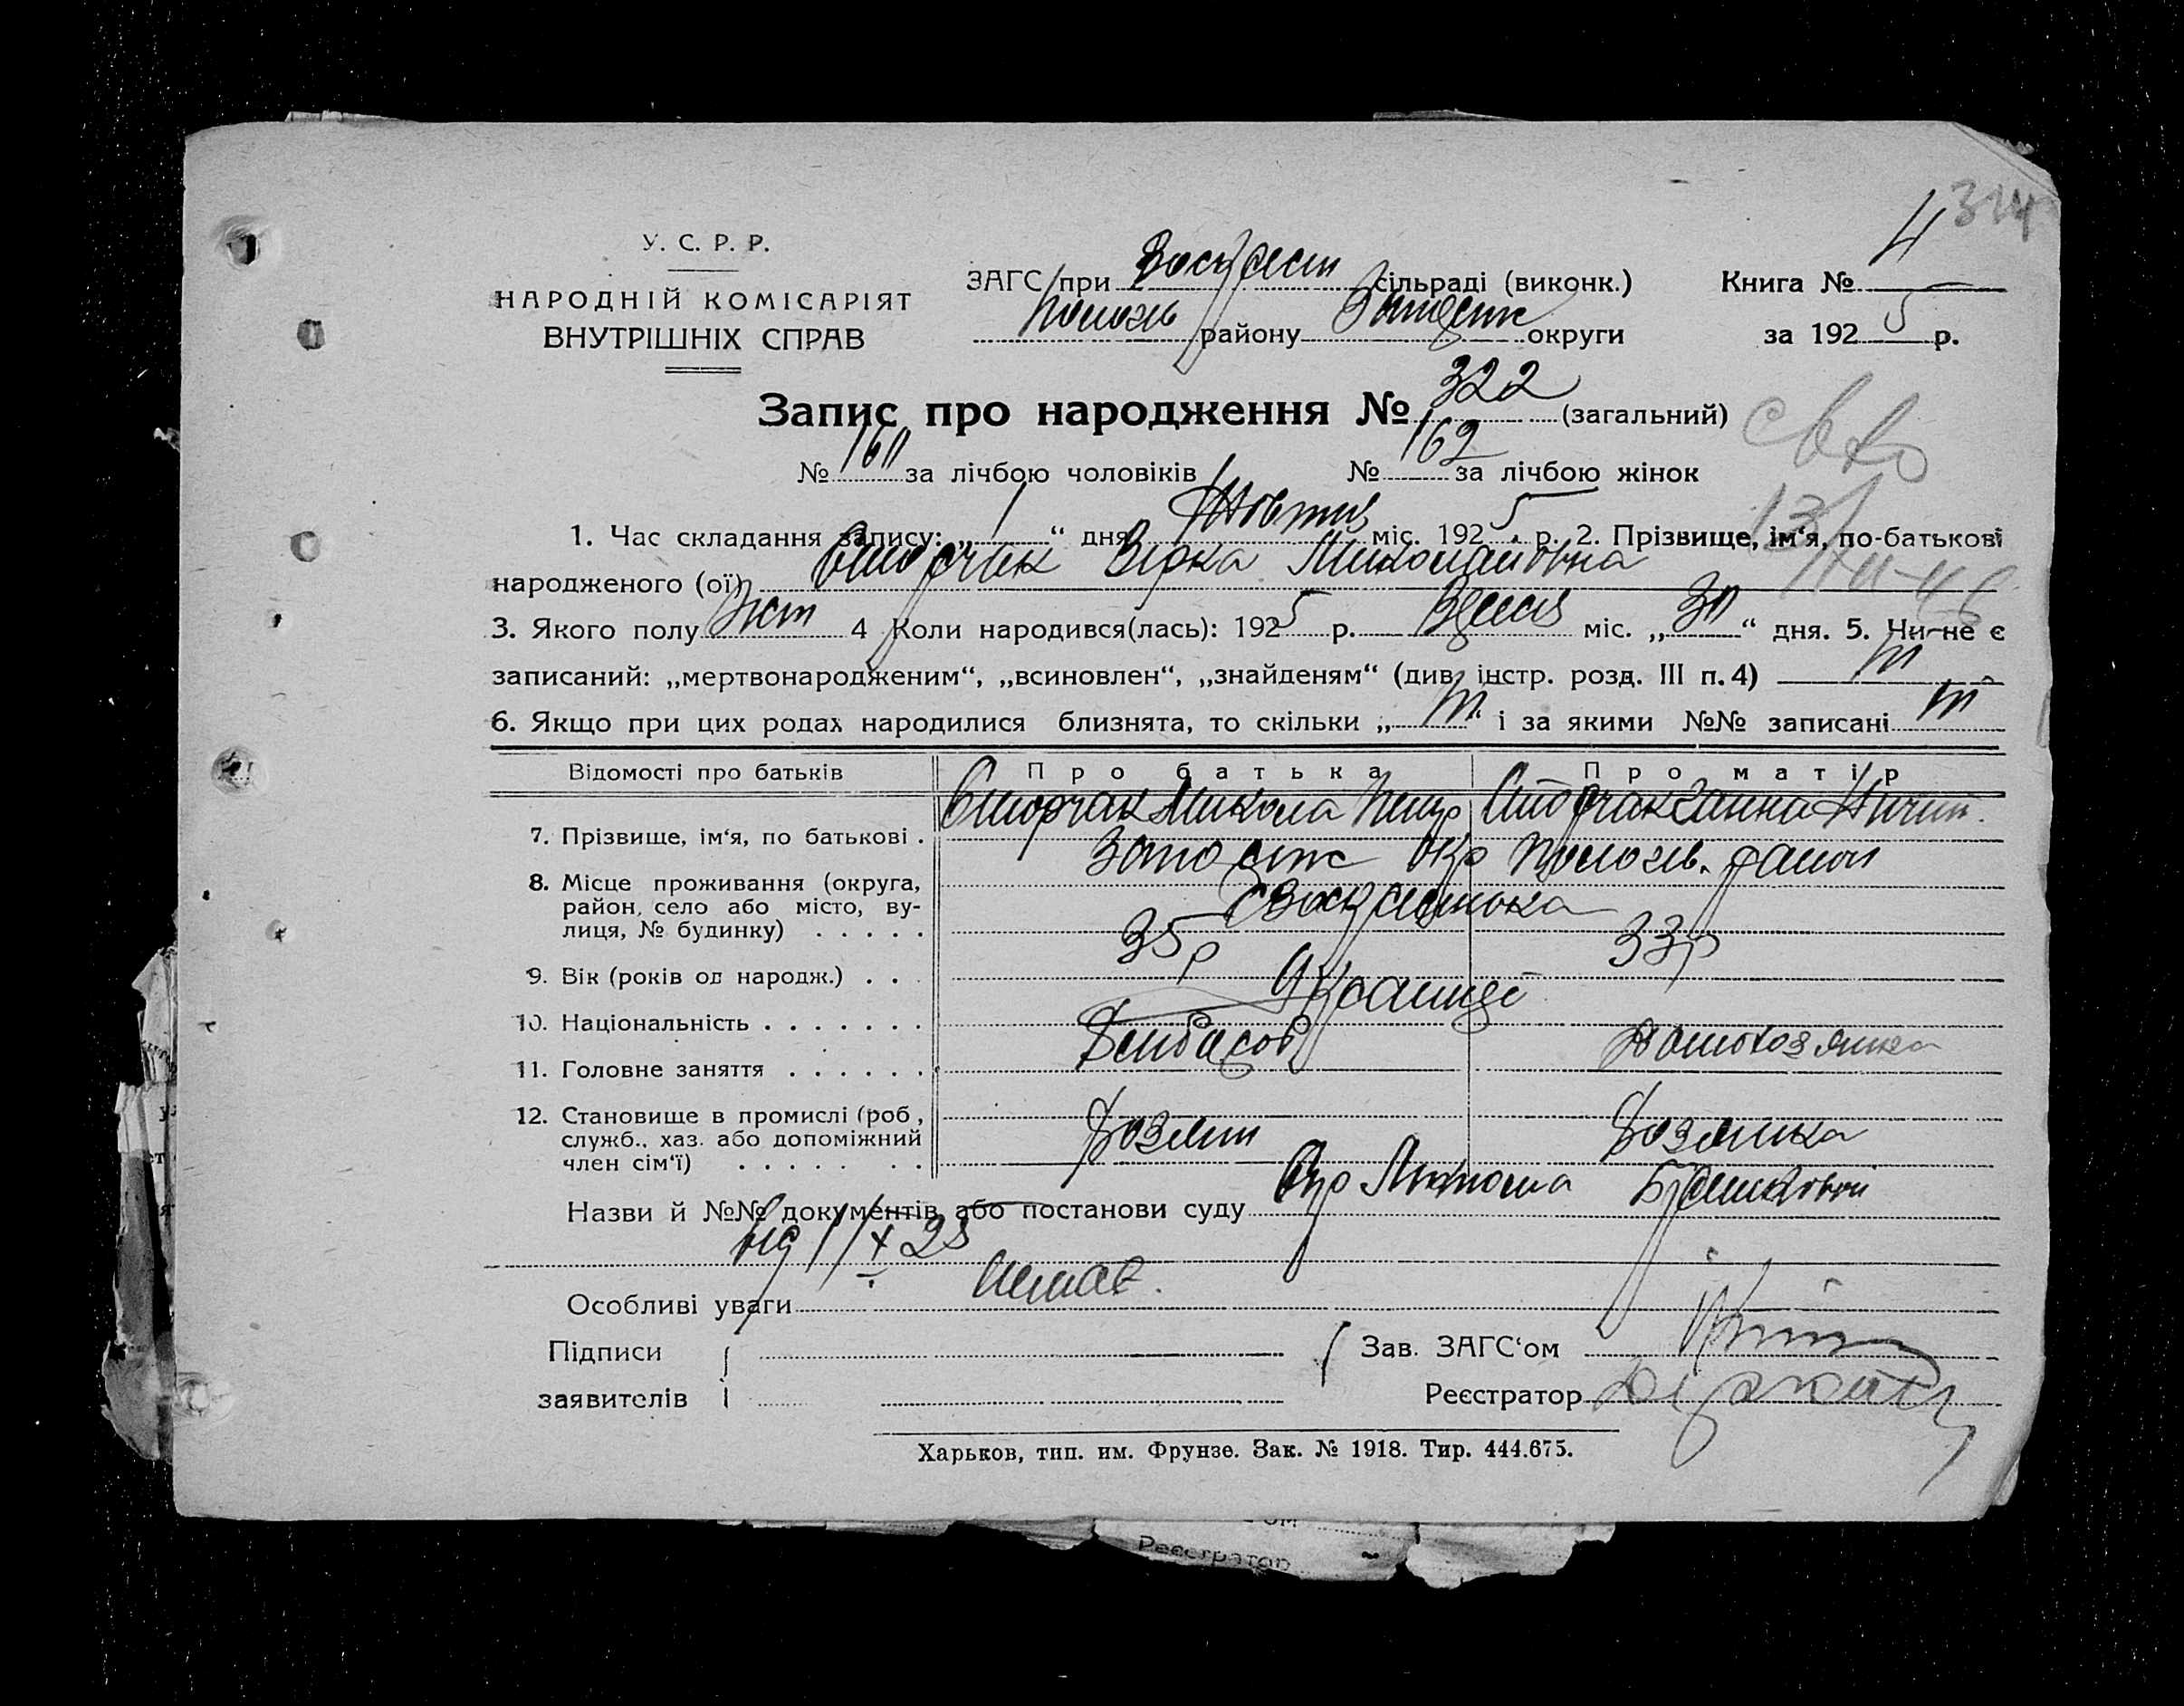 314
У. С. Р. Р.
НАРОДНІЙ КОМІСАРІЯТ
ВНУТРІШНІХ СПРАВ
ЗАГС при Воскресен сільраді (виконк.)
Пологів району Запоріж округи
Книга № 4
за 1925 р.
Запис про народження № 322 (загальний)
№ 160 за лічбою чоловіків № 162 за лічбою жінок
1. Час складання запису: „ 1 “ дня Жовтня міс. 1925 р. 2. Прізвище, ім‘я, по-батькові
народженого (ої) Сторчак Вірка Миколаївна
3. Якого полу жіт 4 Коли народився(лась): 1925 р. міс. „ 30 “ дня. 5. Чи не є
записаний: „мертвонародженим“, „всиновлен“, „знайденям“ (див. інстр. розд. III п. 4) ні
6. Якщо при цих родах народилися близнята, то скільки „ ні “ і за якими №№ записані ні
Відомості про батьків Про батька Про матір
7. Прізвище, ім‘я, по батькові . Сторчак Микола Петр Сторчак Ганна
8. Місце проживання (округа, Запоріж окр Пологів. район
район, село або місто, ву- с Воскресенька
лиця, № будинку) . . . . .
9. Вік (років од народж.) . . . 35 р 33 р
10. Національність . . . . . . . Українці
11. Головне заняття . . . . . . Хлібороб Домохозяйка
12. Становище в промислі (роб., Хозяїн Хозяйка
служб., хаз. або допоміжний
член сім‘ї) . . . . . . .
Назви й №№ документів або постанови суду
від 1/X 25
Особливі уваги Немає.
Підписи
заявителів
Зав. ЗАГС‘ом
Реєстратор
Харьков, тип. им. Фрунзе. Зак. № 1918. Тир. 444.675.
Реєстратор